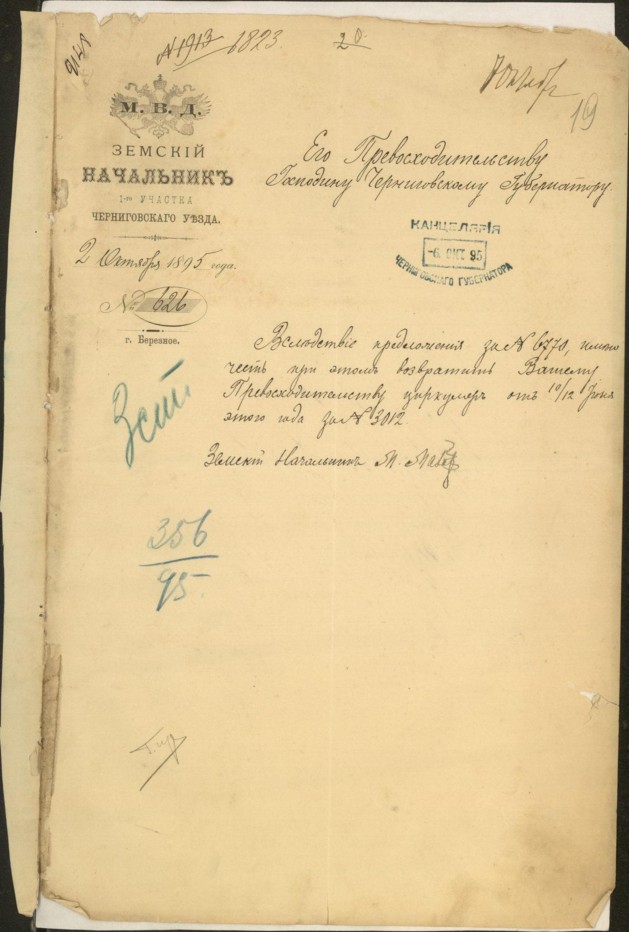 9148
N 1913 1823.
19
М. В. Д.
ЗЕМСКІЙ
НАЧАЛЬНИКЪ
1-го УЧАСТКА
ЧЕРНИГОВСКАГО УѢЗДА.
2 Октября 1895 года.
№ 626
г. Березное.
Его Превосходительству
Господину Черниговскому Губернатору.
КАНЦЕЛЯРІЯ
-6. ОКТ. 95
ЧЕРНИГОВСКАГО ГУБЕРНАТОРА
Вслѣдствіе предложенія за N 6770, имѣю
честь при этомъ возвратить Вашему
Превосходительству циркуляръ отъ 10/12 Іюня
этого года за N 3012.
Земскій Начальникъ М.
356
95